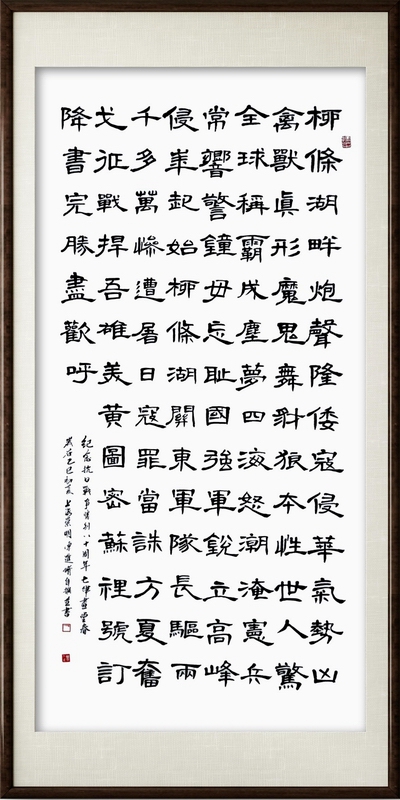 柳條湖畔炮聲隆倭寇侵華氣勢凶
禽獸真形魔鬼舞豺狼本性世人驚
全球稱霸成塵夢四海怒潮淹憲兵
常響警鐘毋忘恥國強軍銳立高峰
侵華起始柳條湖關東軍隊長驅兩
千多萬慘遭屠日寇罪當誅方夏奮
戈征戰捍吾雄美黃圖密蘇裡號訂
降書完勝盡歡呼
紀念抗日戰爭勝利八十周年七律畫堂春
歲在乙巳初夏上海崇明